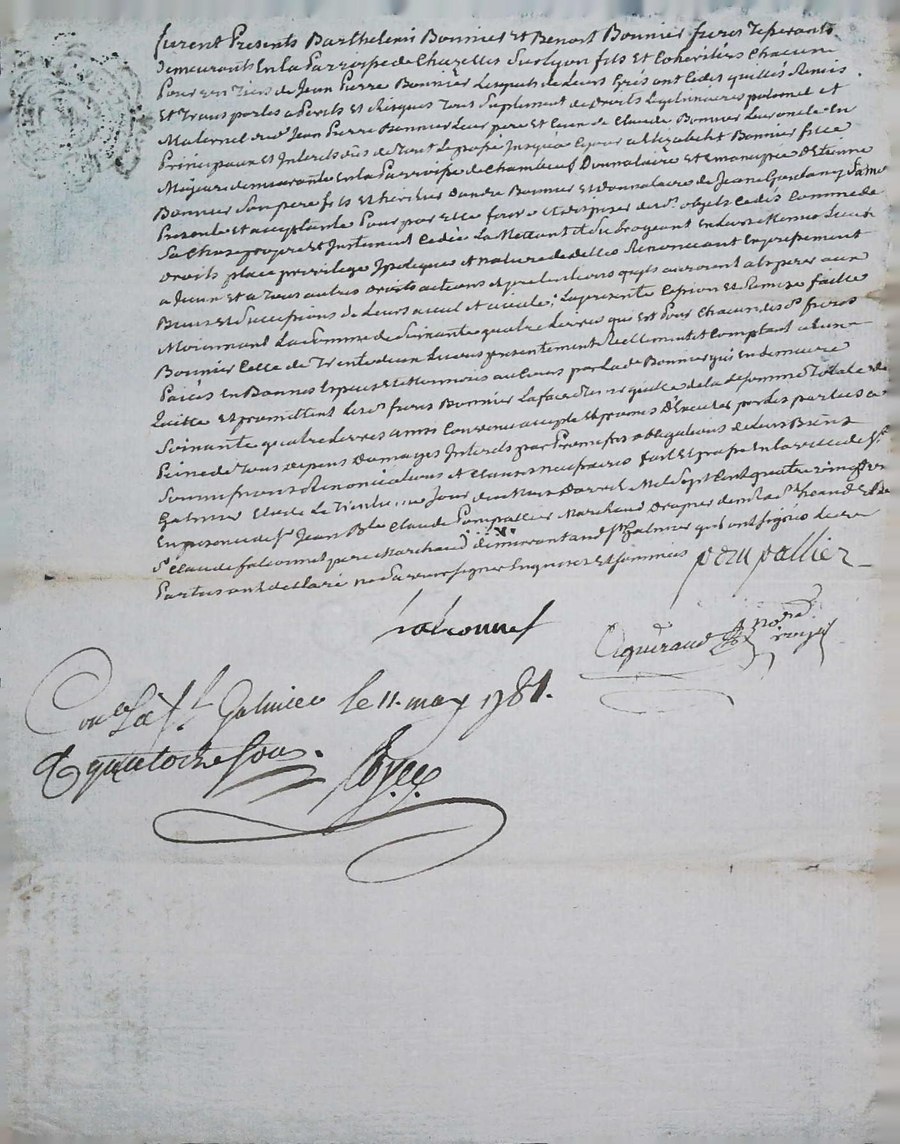 furent Presents Barthelemi Bonnier Et Benoit Bonnier freres Tisserants
Demeurants En la Parroisse de Chazelles Sur lyon fils Et Coheritiers Chacun
Pour un Tiers de Jean Pierre Bonnier Lesquels de Leurs Grés ont Cedes quittés Remis
Et Transportés a Perils et Risques Tous Suplement de droits Legitimaires paternel et
Maternel Jean Pierre Bonnier Leur pere Et Ceux de Claude Bonnier Leur oncle En
Principaux Et Interets dús de Tout Le passé Jusqu'a Ce jour a Elizabeth Bonnier fille
Majeure demeurante En la Parroisse de Chambeuf Donnataire Et emancipée d'Etienne
Bonnier Son pere fils Et heritier d'andre Bonnier Et donnataire de Jeane
Presente Et acceptante Pour par Elle faire Et disposer des objets Cedés Comme de
Sa Chose propre Et Justement Cedée La Mettant Et Subrogeant En leurs Memes Lieux
droits place privilege Ipoteque et nature de dettes Renonceant Expressement
a Iceux Et a Tous autres droits actions et pretentions qu'ils auroient a Esperer aux
Biens Et Successions de Leurs aieul et aieule; La presente Cession Et Remise faitte
Moiennant La Somme de Soixante quatre Livres qui Est Pour Chacun des freres
Bonnier Celle de Trente deux Livres presentement Reellement Et Comptant
Paiées En Bonnes Especes Et Monnois au Cours par la Bonnier qui En demeure
quitte Et promettent Les freres Bonnier La faire Tenir quitte de la de Somme Totale de
Soixante quatre Livres ainsi Convenu accepté Et promis d'Executer par les parties a
Peine de Tous depens Domages Interets par Promesses obligations de leurs Biens
Soumissions Renonciations et Clauses necessaires fait Et passé En la ville de St
Galmier Etude Le jour du Mois D'avril Mil Sept Cent quatre vingt un
En presence de Sr Jean Bte Claude Pompallier Marchand Drapier
Sr Claude falconnet pere Marchand demeurant aud St Galmier qui ont signés
Parties ont declaré ne Savoir signer Enquises Et Sommées
pompallier
falconnet
Con.lé a St Galmier le 11. may 1781.
quatorze sous.